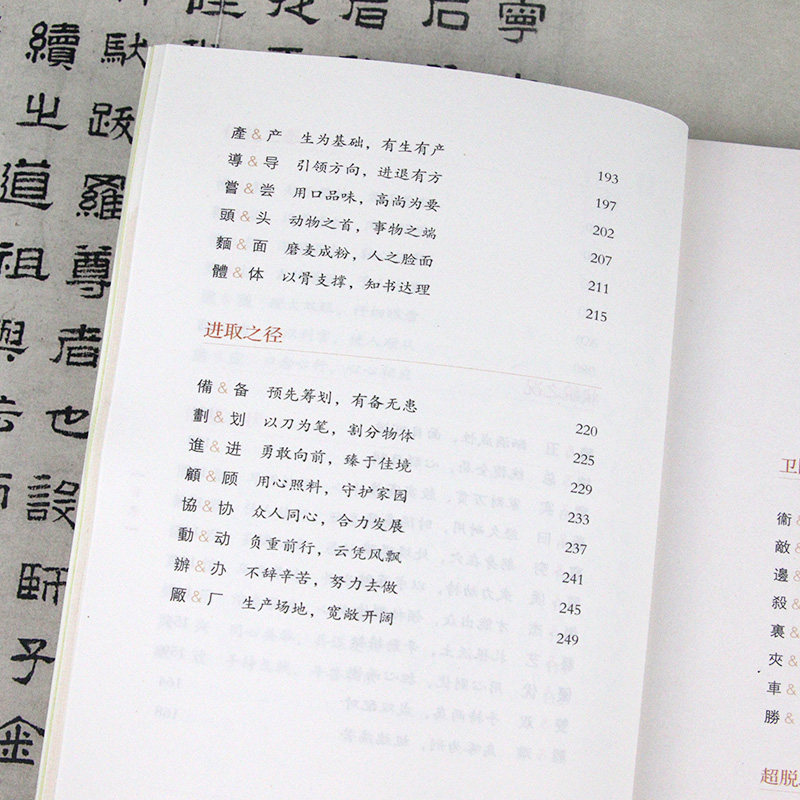 產&产 生为基础，有生有产 193
導&导 引领方向，进退有方 197
嘗&尝 用口品味，高尚为要 202
頭&头 动物之首，事物之端 207
麵&面 磨麦成粉，人之脸面 211
體&体 以骨支撑，知书达理 215
进取之径
備&备 预先筹划，有备无患 220
劃&划 以刀为笔，割分物体 225
進&进 勇敢向前，臻于佳境 229
顧&顾 用心照料，守护家园 233
協&协 众人同心，合力发展 237
動&动 负重前行，云凭风飘 241
辦&办 不辞辛苦，努力去做 245
厰&厂 生产场地，宽敞开阔 249
卫
衞&
敵&
邊&
殺&
裏&
夾&
車&
勝&
超脱
寧
后
馱跋羅尊者也設師子金
續之道祖與